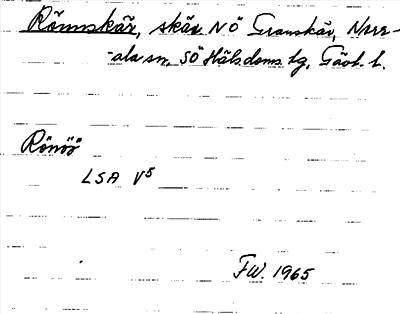 Rönnskär, skär NÖ Granskär, Norr-
-ala sn, SÖ Hälsdoms hg, Gävl. l.
Rönöö
LSA V5
FW. 1965